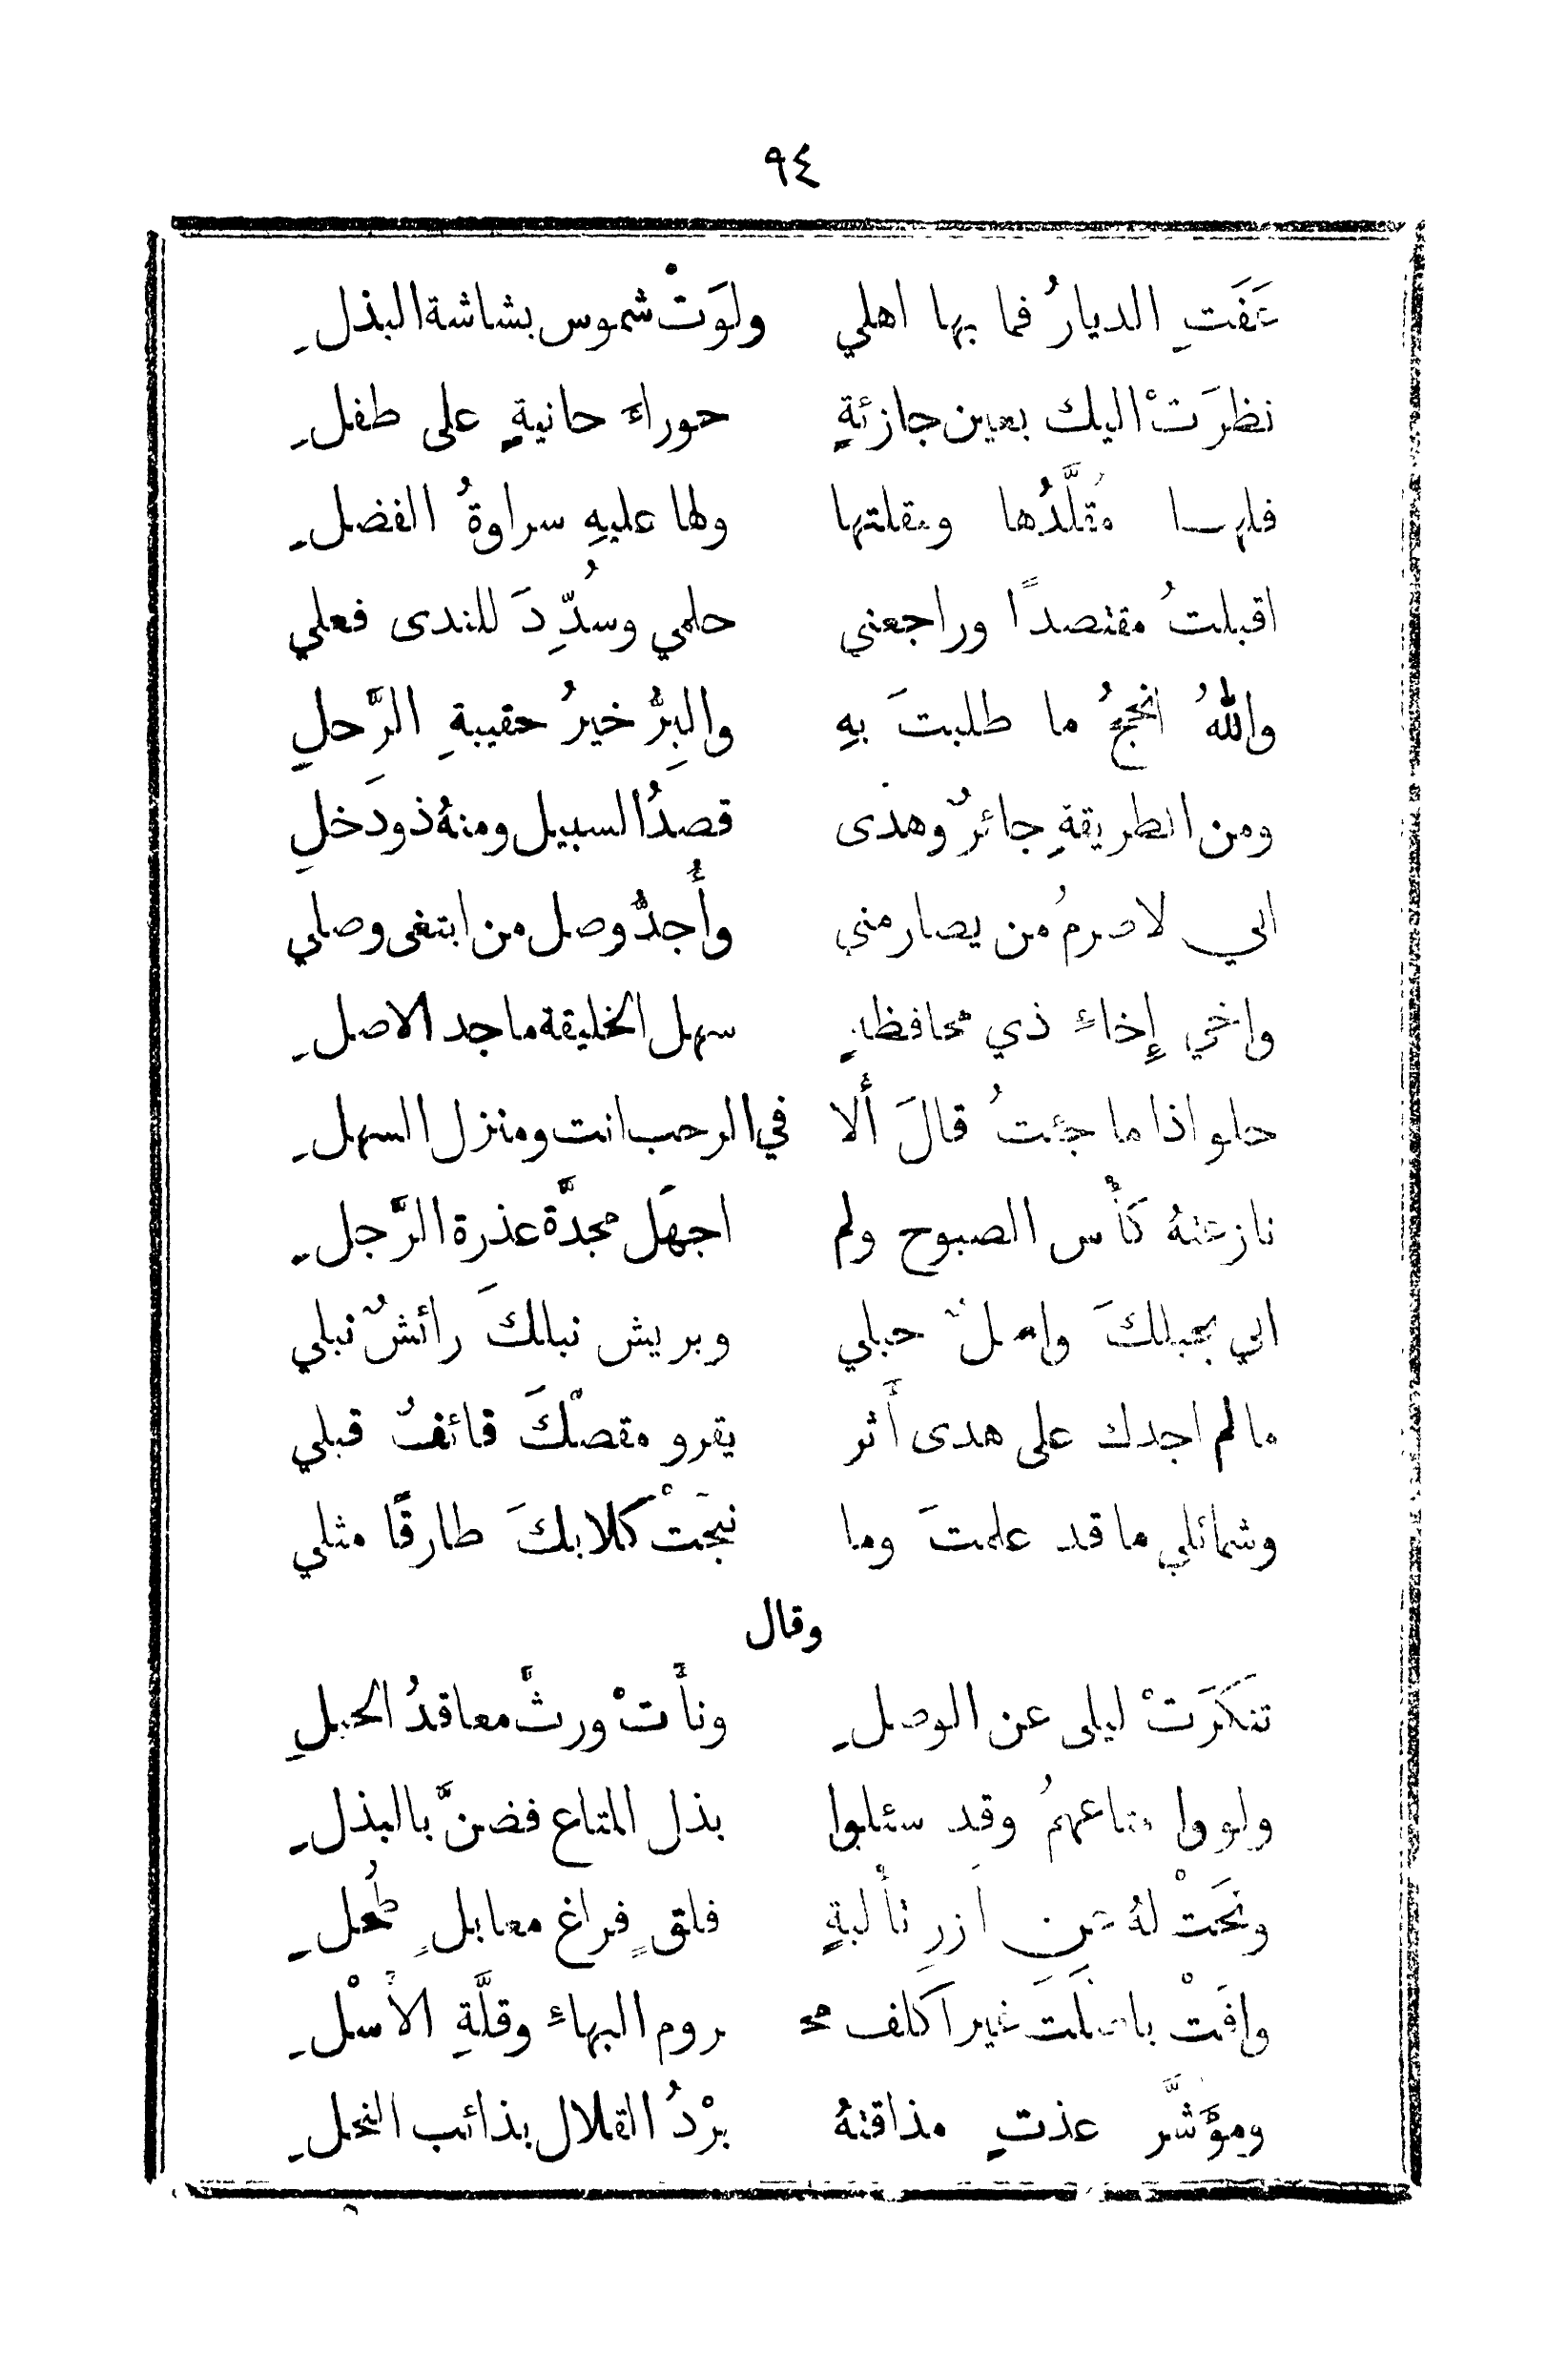 ٩٤
عَفَتِ الديارُ فما بها اهلي ولوَتْ شموس بشاشة البذلِ
نظرَتْ اليك بعين جازئةٍ حوراءَ حانيةٍ على طفلِ
فلهـا مُقلَّدُها ومقلتها ولها عليهِ سراوةُ الفضلِ
اقبلتُ مقتصدًا وراجعني حلمي وسُدِّدَ للندى فعلي
واللهُ انجحُ ما طلبتَ بهِ والبِرُّ خيرُ حقيبةِ الرَّحلِ
ومن الطريقةِ جائرٌ وهدى قصدُ السبيل ومنهُ ذو دَخلِ
اني لاصرمُ من يصارمني وأُجدُّ وصل من ابتغى وصلي
واخي إِخاءِ ذي محافظةٍ سهل الخليقة ماجد الاصلِ
حلو اذا ما جئتُ قالَ أَلا في الرحب انت ومنزل السهلِ
نازعتهُ كأْس الصبوح ولم اجهَل مجدَّة عذرة الرَّجلِ
اني بحبلكَ واصلٌ حبلي وبريش نبلكَ رائشٌ نبلي
مالم اجدك على هدى أَثر يقرو مقصْكَ قائفٌ قبلي
وشمائلي ما قد علمتَ وما نبحَتْ كلابكَ طارقًا مثلي
وقال
تنَكرَتْ ليلى عن الوصلِ ونأَتْ ورثَّ معاقدُ الحبلِ
ولووا متاعهمُ وقد سئلوا بذل المتاع فضنَّ بالبذلِ
ونحَتْ لهُ عن ازرِ تأْلبةٍ فلقٍ فراغ معابلٍ طُحلِ
وافَتْ باصلَتَ غير اكلف محـ ـروم البهاءِ وقلَّةِ الأَسْلِ
ومؤَشَّر عذتِ مذاقتهُ برْدُ القلال بذائب النحلِ